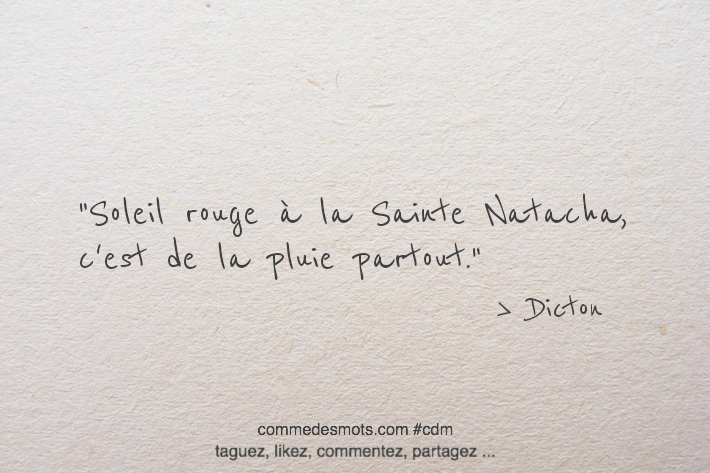 "Soleil rouge à la Sainte Natacha,
c'est de la pluie partout."
> Dicton
commedesmots.com #cdm
taguez, likez, commentez, partagez ...